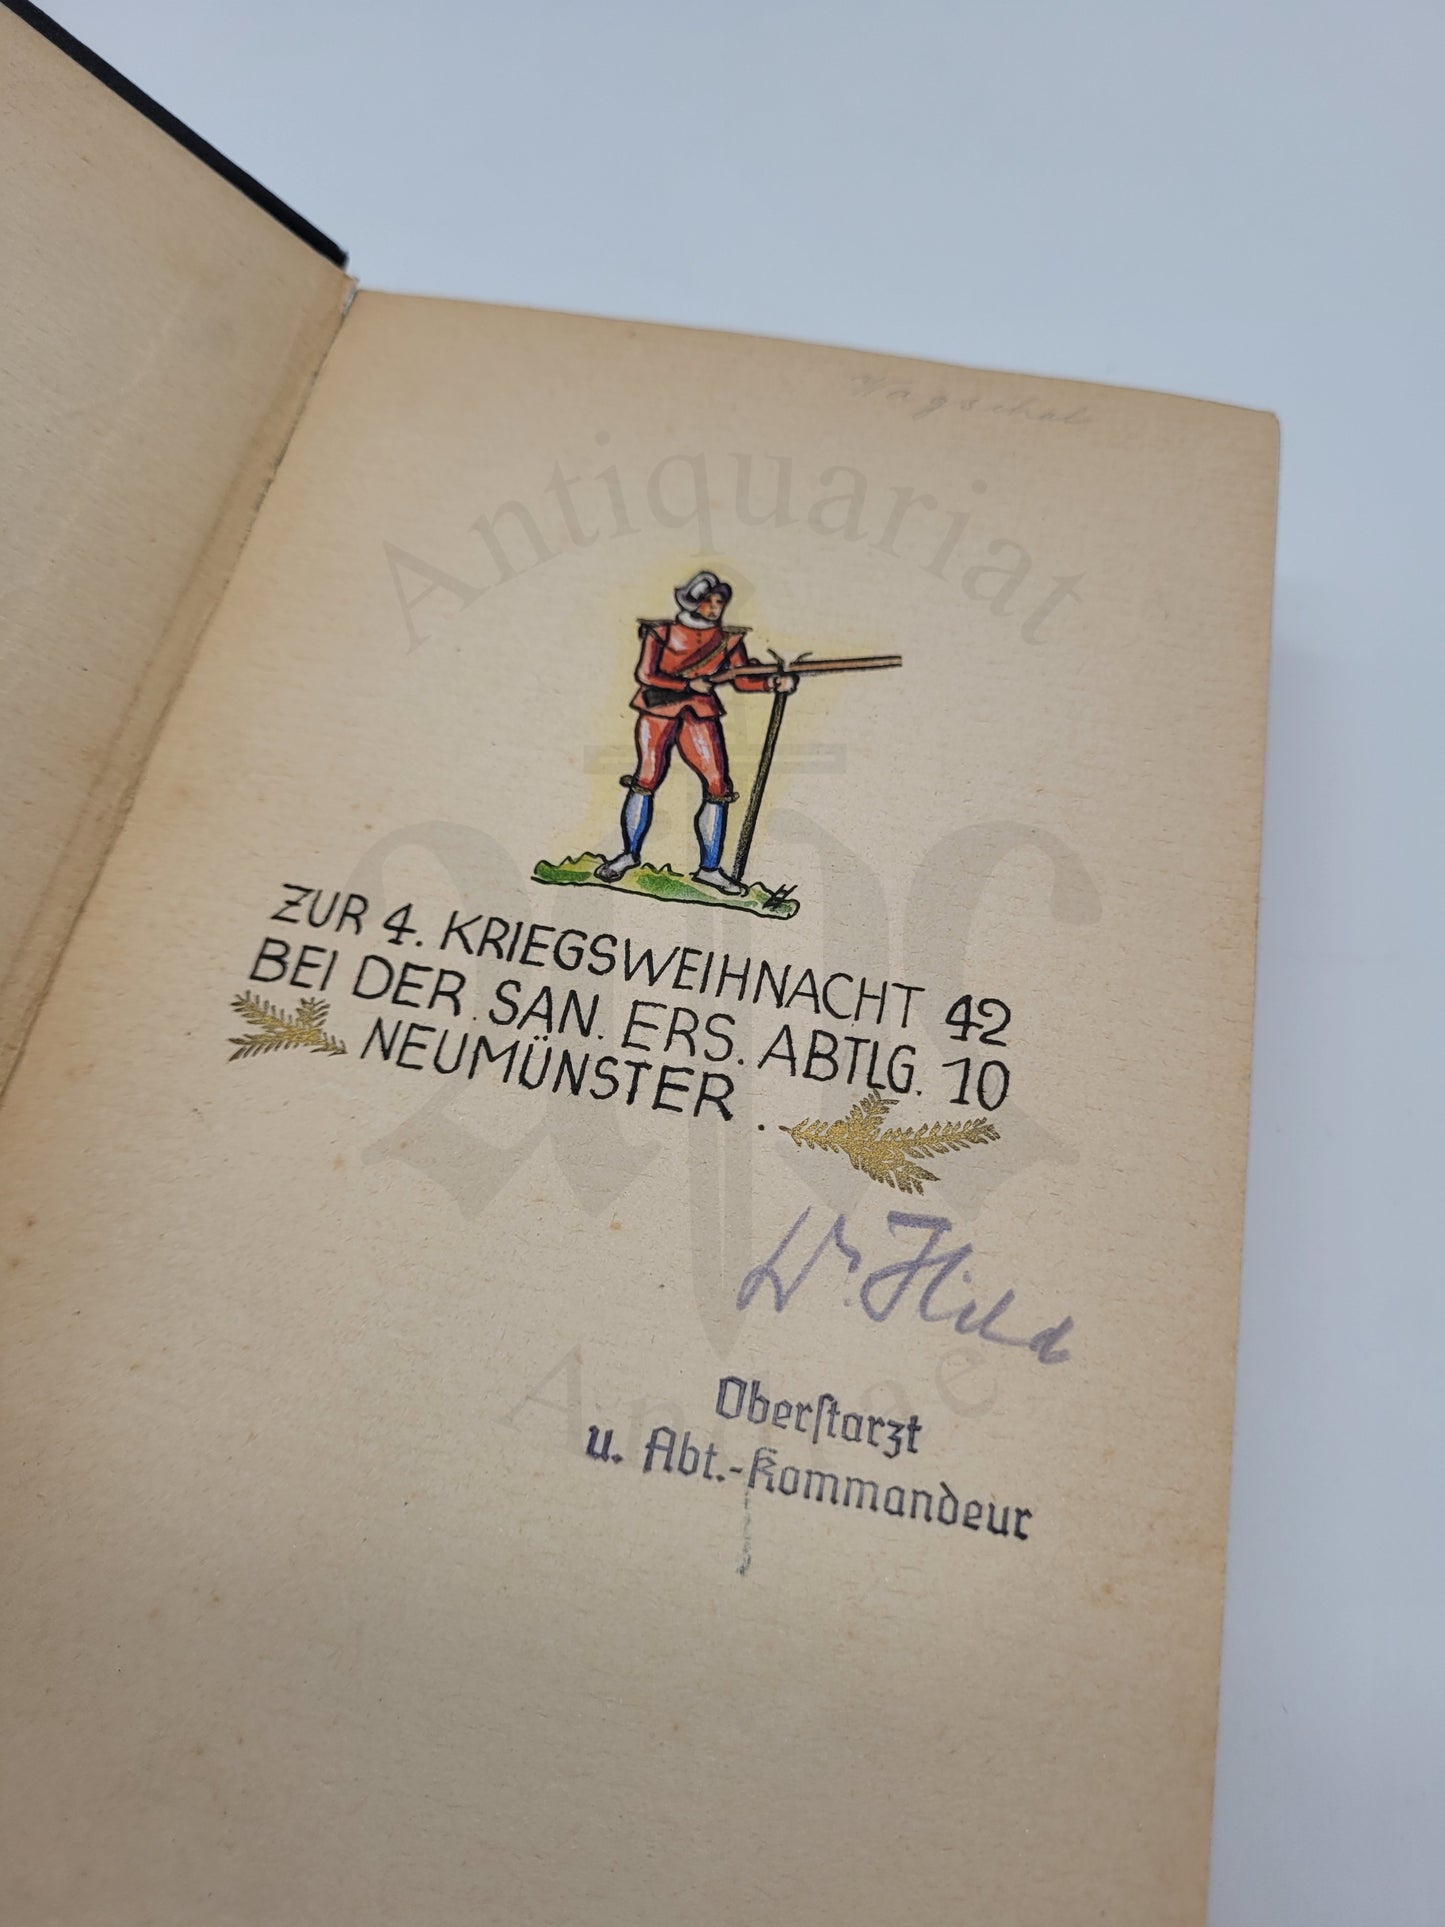 Hagschal
Antiquariat
ZUR 4. KRIEGSWEIHNACHT 42
BEI DER SAN. ERS. ABTLG. 10
NEUMÜNSTER.
Dr. Hild
Oberstarzt
u. Abt.-Kommandeur